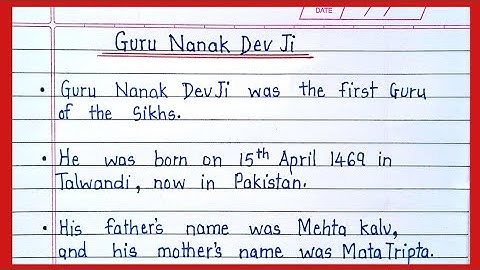 DATE
Guru Nanak Dev Ji
• Guru Nanak Dev Ji was the first Guru
of the Sikhs.
• He was born on 15th April 1469 in
Talwandi, now in Pakistan.
• His father's name was Mehta kalu,
and his mother's name was Mata Tripta.